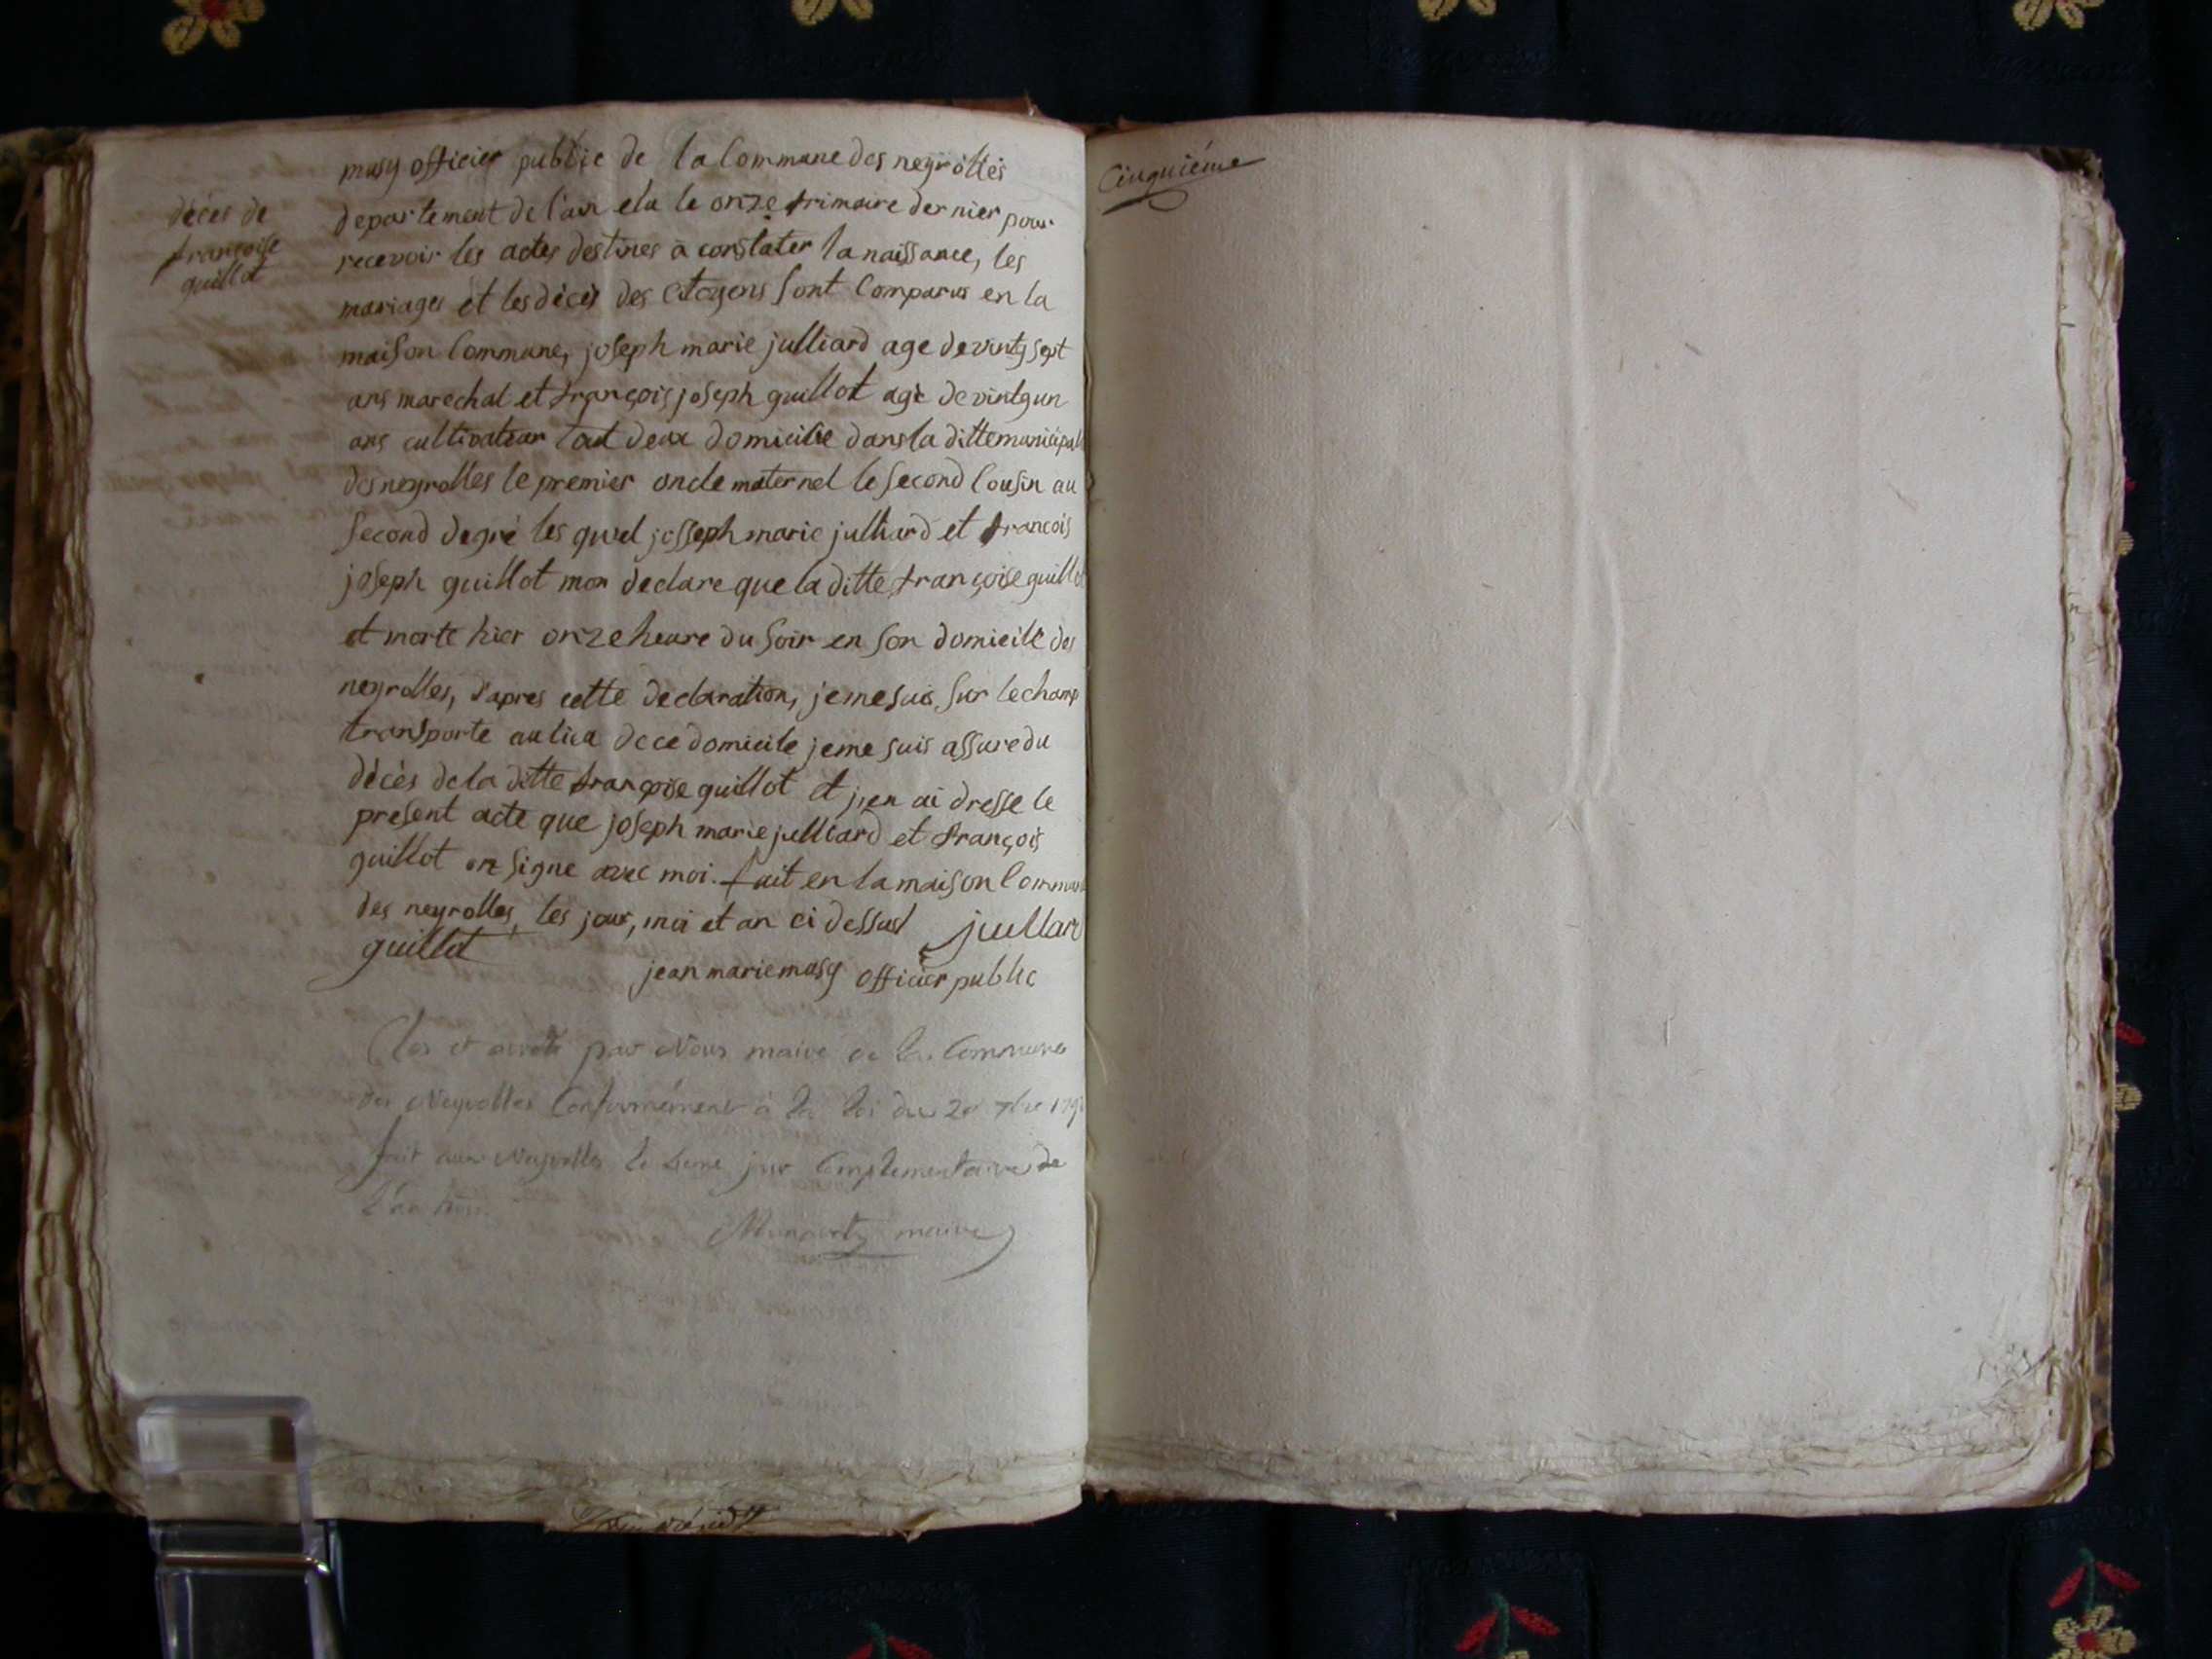 décès de
françoise
guillot
musy officier public de la Commune des neyrolles
departement de l'ain elu le onze frimaire dernier pour
recevoir les actes destines à constater la naissance, les
mariages et les décès des Citoyens Sont Comparus en la
maison Commune, joseph marie julliard age de vintg sept
ans marechal et françois joseph guillot agè de vintg un
ans cultivateur tout deux domicilie dans la ditte municipal
des neyrolles le premier oncle maternel le second Cousin au
Second degré les quel josseph marie julliard et francois
joseph guillot mon declare que la ditte françoise guillot
et morte hier onze heure du soir en son domicile des
neyrolles, d'apres cette declaration, je me suis, sur le champ
transporte au lieu de ce domicile je me suis assure du
décès de la ditte françoise guillot et j'en ai dresse le
present acte que joseph marie julliard et françois
guillot on signe avec moi. fait en la maison Commune
des neyrolles, les jour, moi et an ci dessus julliard
guillot
jean marie musy officier public
Clos et arreté par Nous maire de la Commune
des Neyrolles Conformément à la loi du 20 7bre 179
fait aux Neyrolles le jour Complementaire de
l'an
maire
Cinquiéme